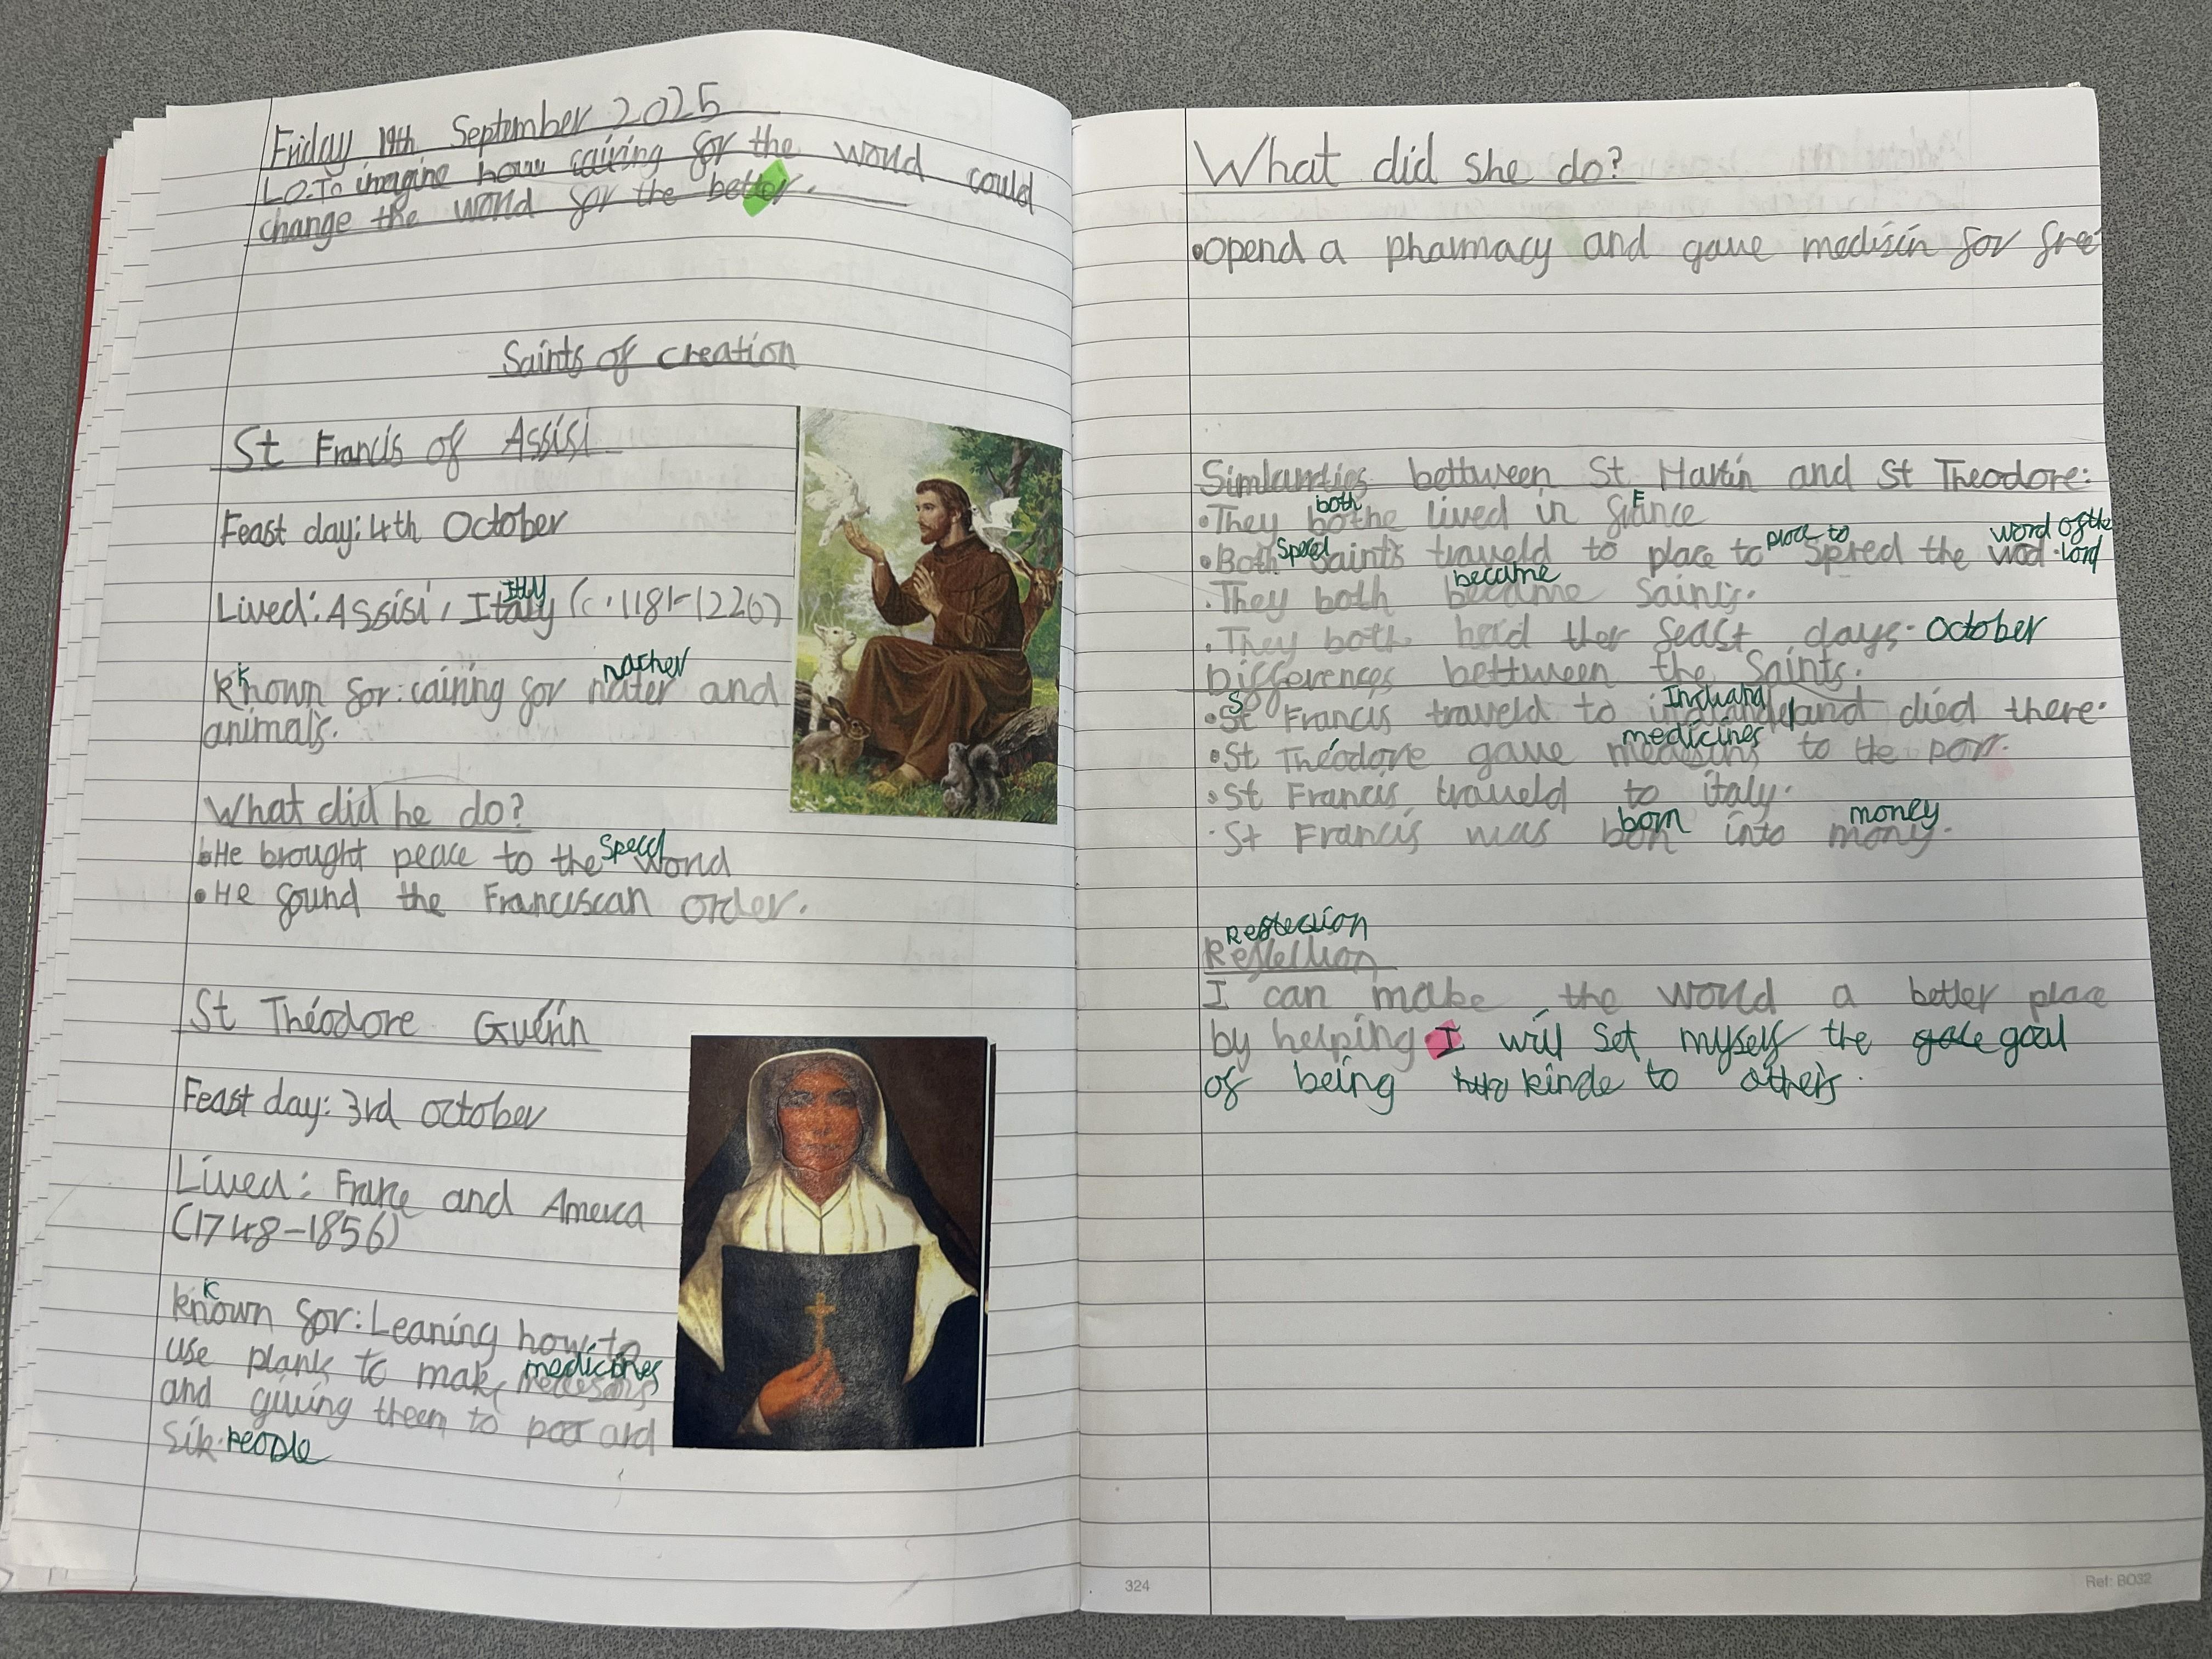 Friday 19th September 2025
L.O.To imagine how cairing for the world could
change the world for the better.
Saints of creation
St Francis of Assisi
Feast day: 4th October
Itly
Lived: Assisi, Italy (c.1181-1226)
K nacher
known for: cairing for nater and
animals.
What did he do?
Specd
He brought peace to the world
• He found the Franciscan order.
St Théodore Guérin
Feast day: 3rd october
Lived: Franke and Amerca
(1748-1856)
K
known for: Leaning how to
use plants to make
medicines
and giving them to poor and
sik. People
What did she do?
• Opend a pharmacy and gave medisin for fre
Simlarities bettween St Martin and St Theodore:
both F
• They bothe lived in france
Spred place to word of the
• Both Saints traveld to place to Spred the wod. Lord
became
. They both became Saints.
. They both held ther feast days. October
Differences bettween the Saints.
S Incland
• St Francis traveld to and died there.
medicines
• St Théodore gave to the porr.
• St Francis traveld to italy.
born money
. St Francis was bon into mony.
Reflection
Reflellion
I can make the world a better place
by helping I will set myself the gole goal
of being kinde to others.
324
Ref: BO32